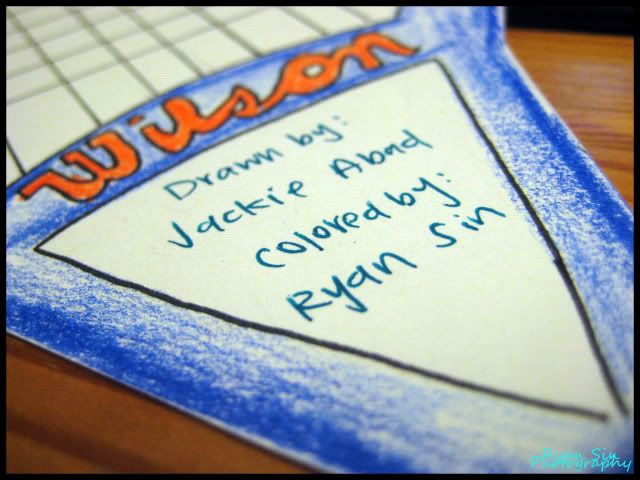 Wilson
Drawn by:
Jackie Abad
Colored by:
Ryan Sin
Ryan Sin
Photography